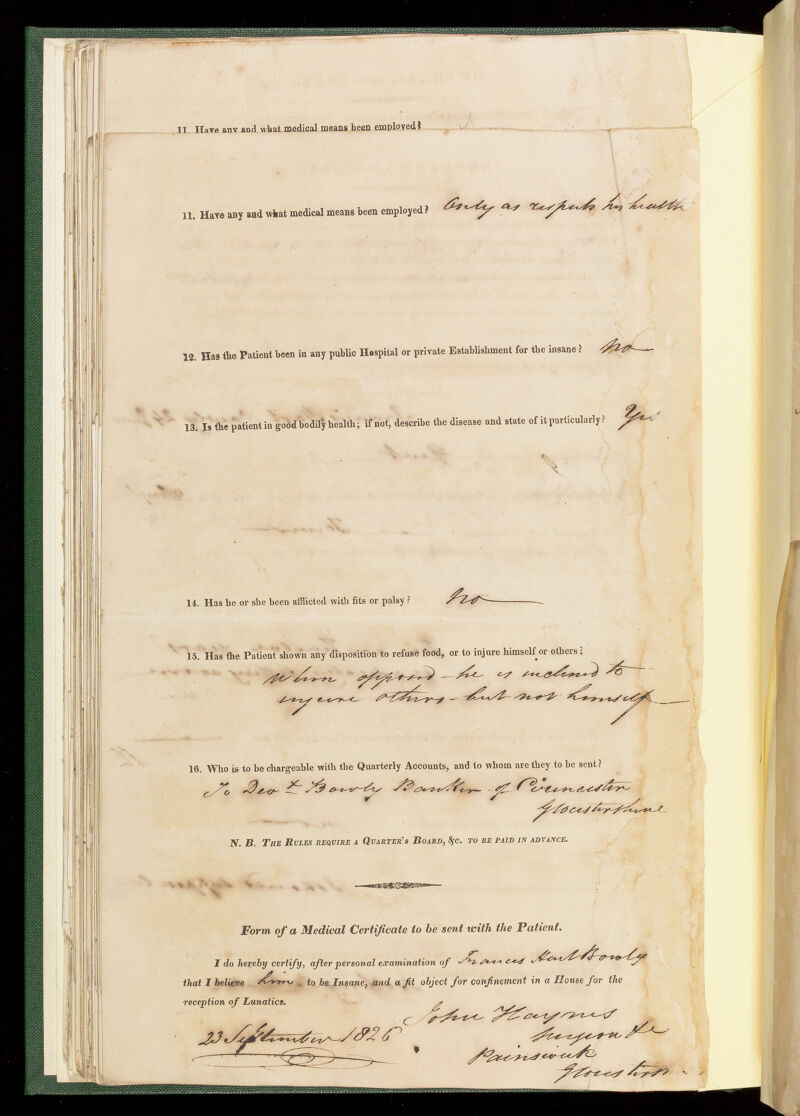 11. Have any and what medical means been employed?
11. Have any and what medical means been employed? Only as respects his health
12. Has the Patient been in any public Hospital or private Establishment for the insane? No
13. Is the patient in good bodily health; if not, describe the disease and state of it particularly? Yes
14. Has he or she been afflicted with fits or palsy? No
15. Has the Patient shown any disposition to refuse food, or to injure himself or others?
When opposed - he is inclined to
injure others - but not himself
16. Who is to be chargeable with the Quarterly Accounts, and to whom are they to be sent?
To Bowly Banker of Cirencester
Glocestershire
N. B. THE RULES REQUIRE A QUARTER'S BOARD, &C. TO BE PAID IN ADVANCE.
Form of a Medical Certificate to be sent with the Patient.
I do hereby certify, after personal examination of Frances Hart Bowly
that I believe him to be Insane, and a fit object for confinement in a House for the
reception of Lunatics.
John Haynes
23 September 1826 Surgeon &c
Painswick